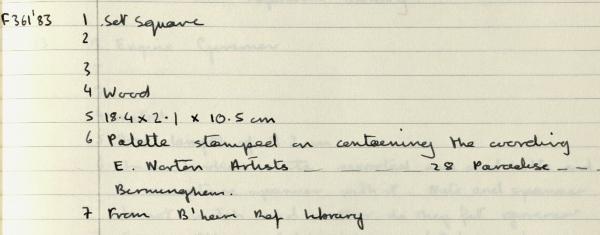 F361'83 1 Set Square
2
3
4 Wood
5 18.4 x 2.1 x 10.5 cm
6 Palette stamped on containing the wording
E. Warton Artists 28 Paradise - -
Birmingham.
7 From B'ham Ref Library